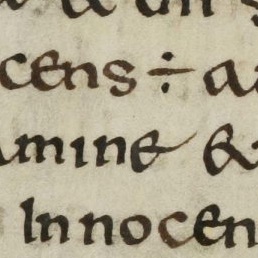 cens ÷ a
amine &
Innocen